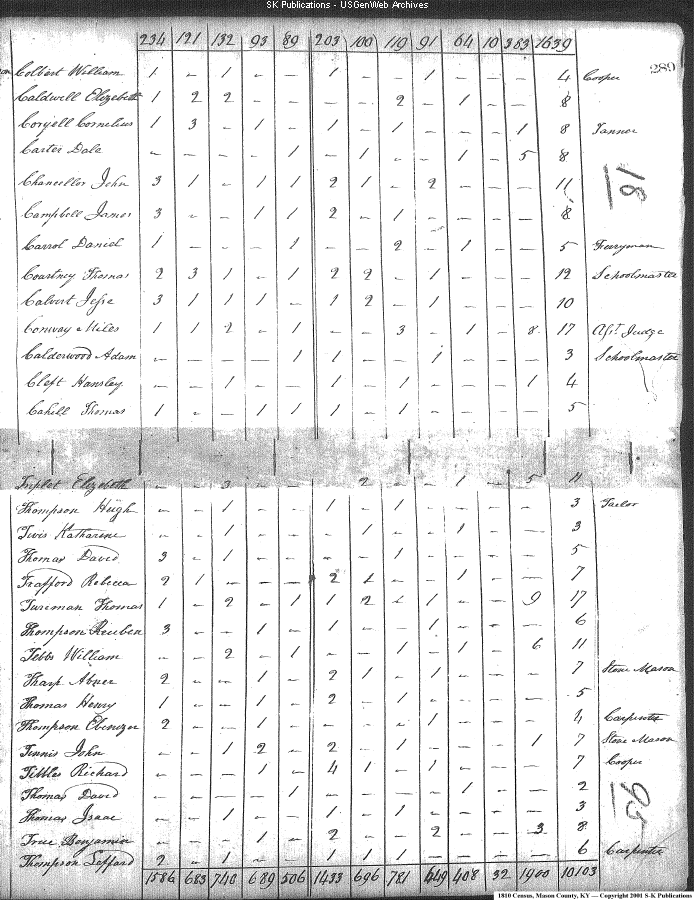 SK Publications - USGenWeb Archives
234 121 132 93 89 203 100 119 91 64 10 383 1639
289
Colbert William 1 - 1 - - 1 - - 1 - - - 4 Cooper
Caldwell Elizabeth 1 2 2 - - - - 2 - 1 - - 8
Coryell Cornelius 1 3 - 1 - 1 - 1 - - - 1 8 Tannor
Carter Dale - - - - 1 - 1 - - 1 - 5 8
18
Chancellor John 3 1 - 1 1 2 1 - 2 - - - 11
Campbell James 3 - - 1 1 2 - 1 - - - - 8
Carrol Daniel 1 - - - 1 - - 2 - 1 - - 5 Ferryman
Courtney Thomas 2 3 1 - 1 2 2 - 1 - - - 12 Schoolmaster
Calvert Jesse 3 1 1 1 - 1 2 - 1 - - - 10
Conway Miles 1 1 2 - 1 - - 3 - 1 - 8 17 Asst. Judge
Calderwood Adam - - - - 1 1 - - 1 - - - 3 Schoolmaster
Cleft Hansley - - 1 - - 1 - 1 - - - 1 4
Cahill Thomas 1 - - 1 1 1 - 1 - - - - 5
Triplet Elizabeth - - 3 - - - 2 - - 1 - 5 11
Thompson Hugh - - 1 - - 1 - 1 - - - - 3 Tailor
Twis Katharine - - 1 - - - 1 - - 1 - - 3
Thomas David 3 - 1 - - - - 1 - - - - 5
Trafford Rebecca 2 1 - - - 2 1 - - 1 - - 7
Tureman Thomas 1 - 2 - 1 1 2 - 1 - - 9 17
Thompson Reuben 3 - - 1 - 1 - - 1 - - - 6
Tebbs William - - 2 - 1 - - 1 - 1 - 6 11
Tharp Abner 2 - - 1 - 2 1 - 1 - - - 7 Stone Mason
Thomas Henry 1 - - - 1 2 - 1 - - - - 5
Thompson Ebenezer 2 - - 1 - - - - 1 - - - 4 Carpenter
Tennis John - - 1 2 - 2 - 1 - - - 1 7 Stone Mason
Tibbles Richard - - - 1 - 4 1 - 1 - - - 7 Cooper
Thomas David - - - - 1 - - - - 1 - - 2
95
Thomas Isaac - - 1 - - 1 - 1 - - - - 3
True Benjamin - - - 1 - 2 - - 2 - - 3 8
Thompson Leffard 2 - 1 - - 1 1 1 - - - - 6 Carpenter
1586 683 740 689 506 1433 696 781 649 408 32 1900 10103
1810 Census, Mason County, KY — Copyright 2001 S-K Publications